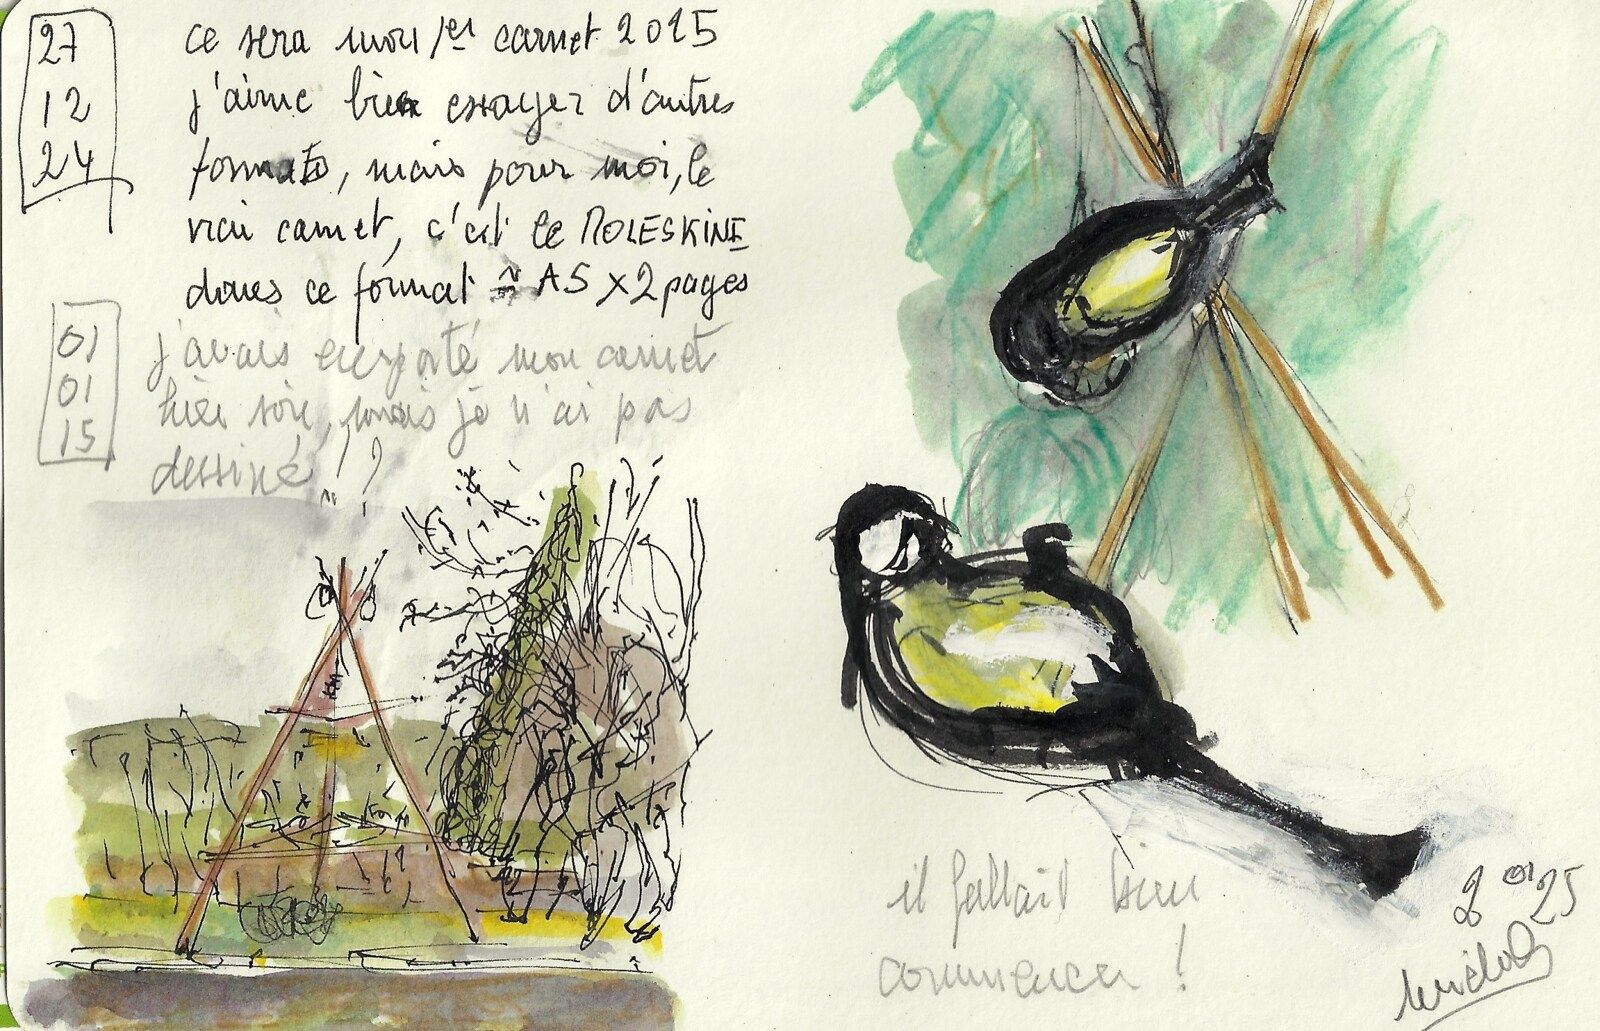 27
12
24
ce sera mon 1er carnet 2025
j'aime bien essayer d'autres
formats, mais pour moi, le
vrai carnet, c'est le MOLESKINE
dans ce format ≈ A5 x 2 pages
01
01
15
j'avais emporté mon carnet
hier soir, mais je n'ai pas
dessiné !?
il fallait bien
commencer !
2 01 25